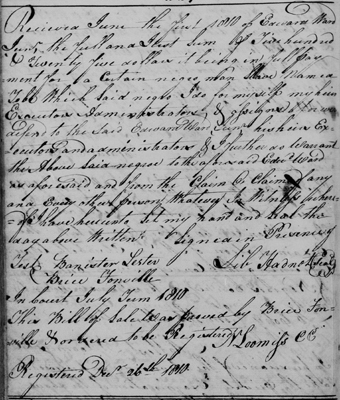 Received June the first 1810 of Edward Ward
Junr the full and Just Sum of five hundred
& Twenty five dollars it being in full pay
ment for a Certain negro man Slave Named
Which said negro I do for myself my heirs
Executors Administrators & assigns
to the Said Edward Ward Junr his heirs Ex
ecutors and administrators & I further do Warrant
the Above said negroe to the aforesaid Edwd Ward
as aforesaid and from the Claim or Claims of any
and Every other person Whatever In Witness where
of I have hereunto set my hand and Seal the
day above Written Signed in Presence of
Test Banister Lester
Brice Fonville
Hadnot Seal
In Court July Term 1810
This Bill of Sale was proved by Brice Fon
ville & ordered to be Registered
N Loomiss CC
Registered Decr 26th 1810